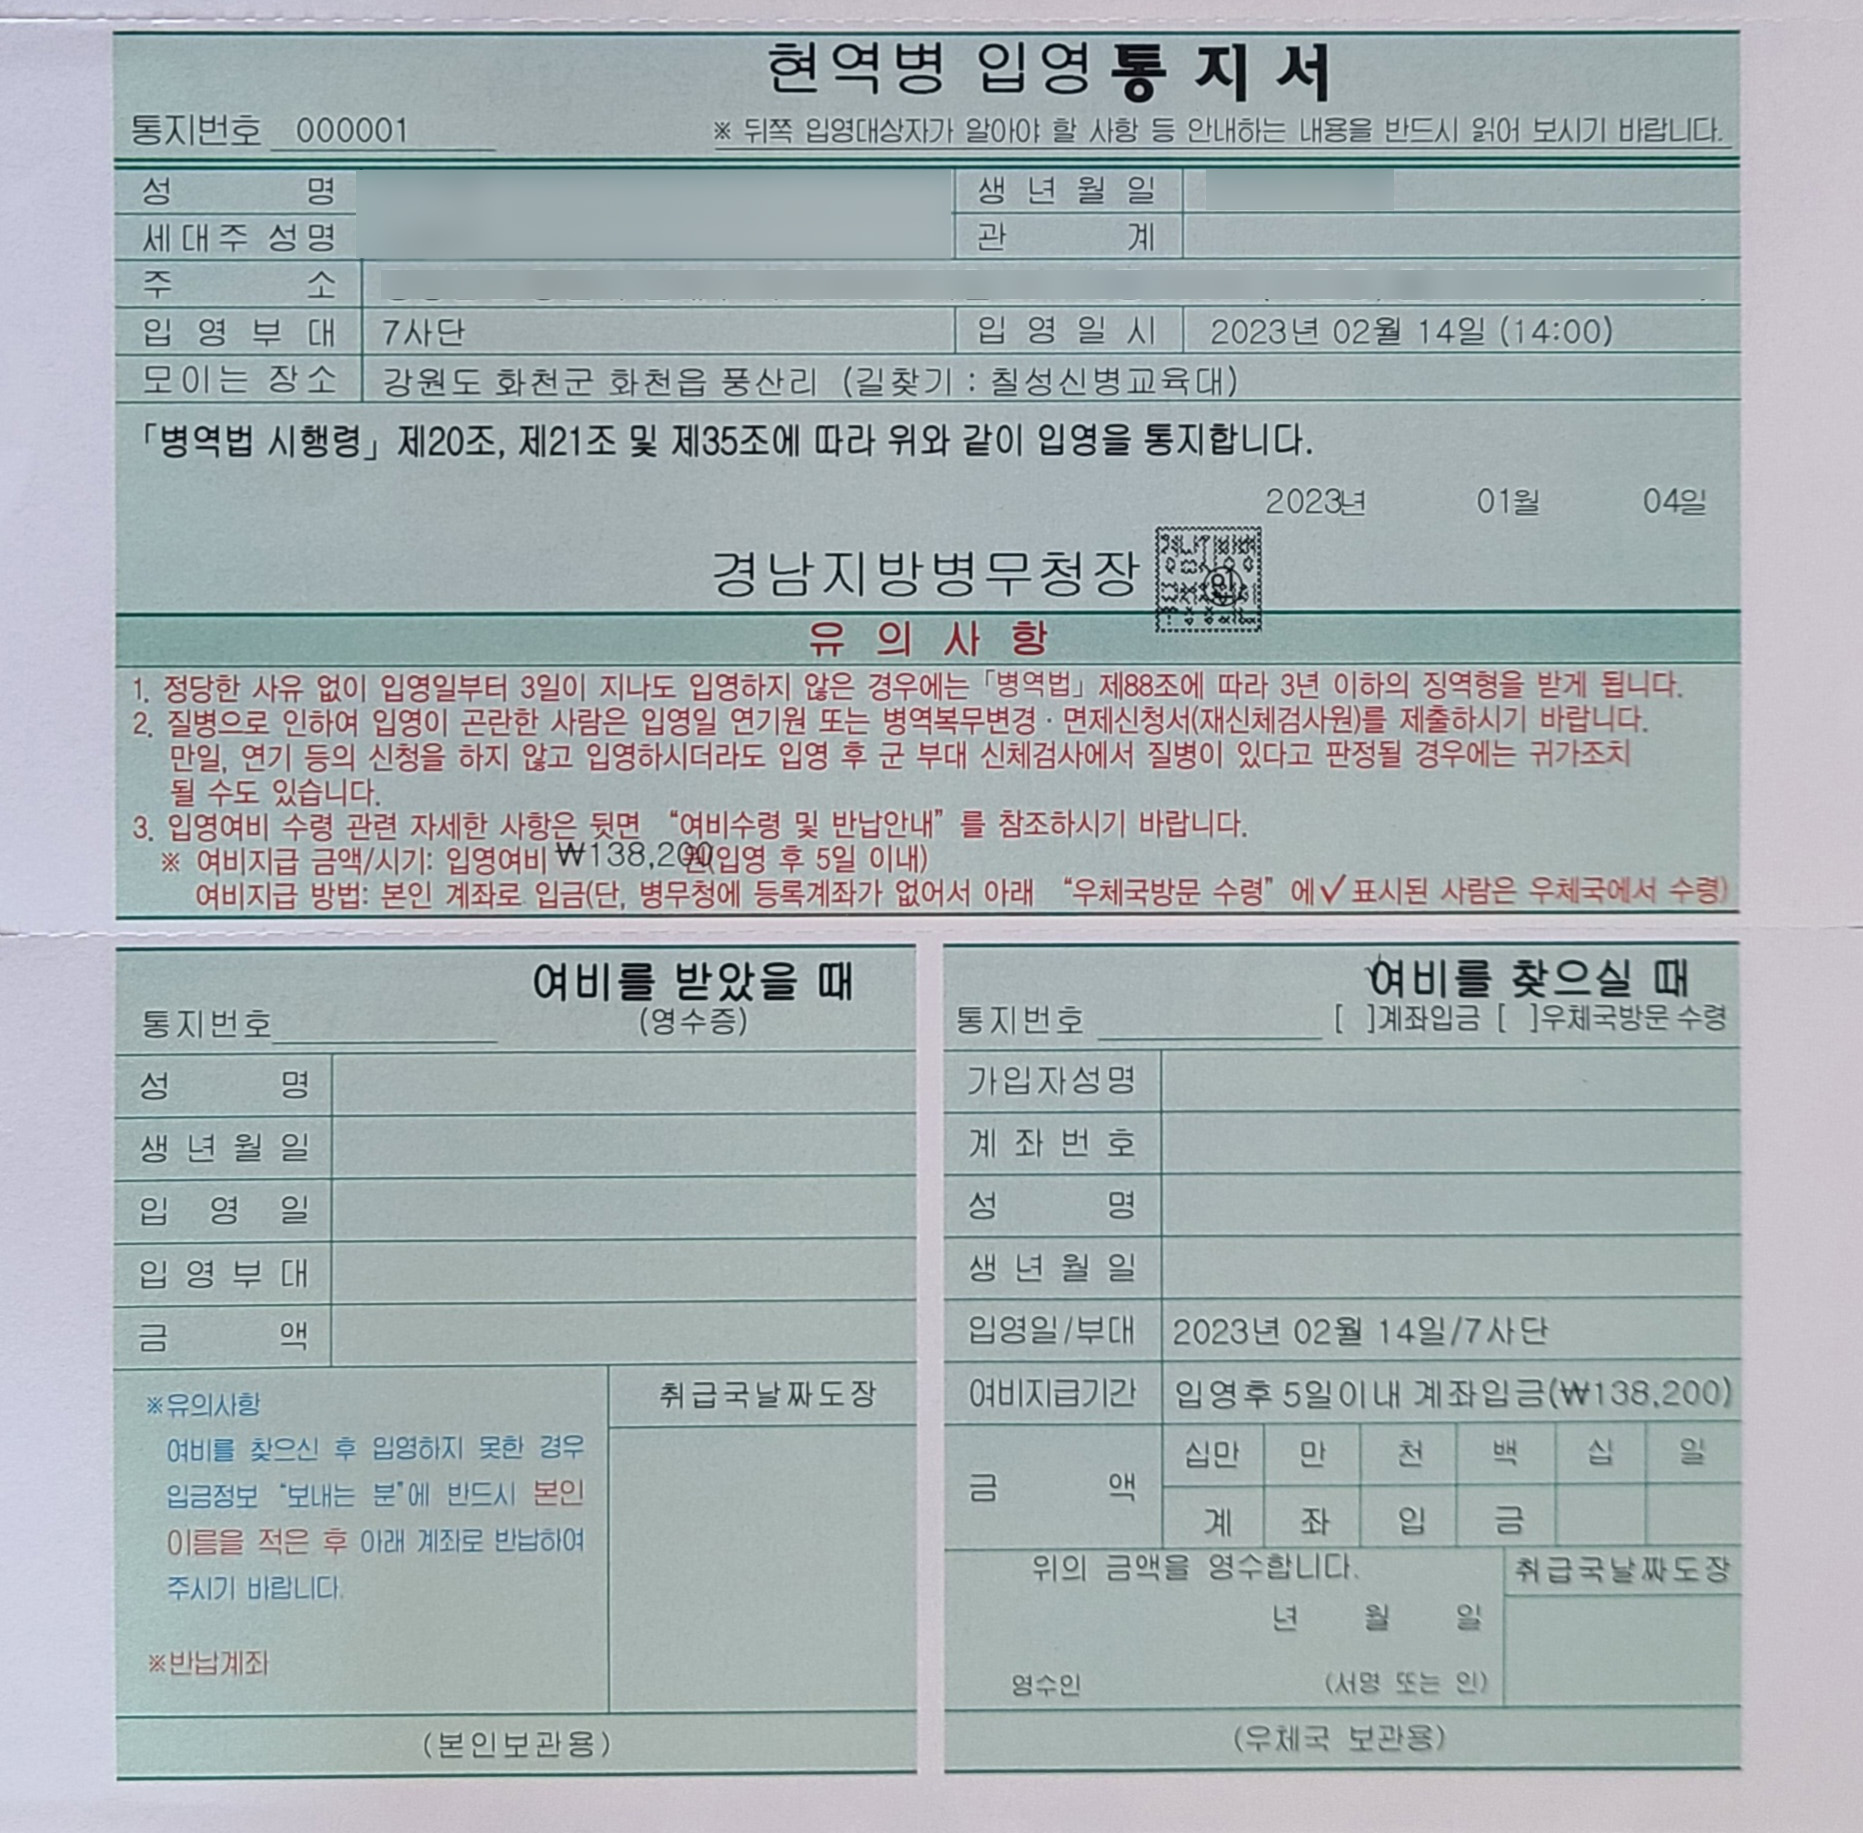 현역병 입영 통 지 서
통지번호 000001 ※ 뒤쪽 입영대상자가 알아야 할 사항 등 안내하는 내용을 반드시 읽어 보시기 바랍니다.
성 명 생 년 월 일
세대주 성명 관 계
주 소
입 영 부 대 7사단 입 영 일 시 2023년 02월 14일 (14:00)
모이는 장소 강원도 화천군 화천읍 풍산리 (길찾기 : 칠성신병교육대)
「병역법 시행령」 제20조, 제21조 및 제35조에 따라 위와 같이 입영을 통지합니다.
2023년 01월 04일
경남지방병무청장 인
유 의 사 항
1. 정당한 사유 없이 입영일부터 3일이 지나도 입영하지 않은 경우에는 「병역법」 제88조에 따라 3년 이하의 징역형을 받게 됩니다.
2. 질병으로 인하여 입영이 곤란한 사람은 입영일 연기원 또는 병역복무변경 · 면제신청서(재신체검사원)를 제출하시기 바랍니다.
만일, 연기 등의 신청을 하지 않고 입영하시더라도 입영 후 군 부대 신체검사에서 질병이 있다고 판정될 경우에는 귀가조치
될 수도 있습니다.
3. 입영여비 수령 관련 자세한 사항은 뒷면 “여비수령 및 반납안내” 를 참조하시기 바랍니다.
※ 여비지급 금액/시기: 입영여비 ₩138,200원(입영 후 5일 이내)
여비지급 방법: 본인 계좌로 입금(단, 병무청에 등록계좌가 없어서 아래 “우체국방문 수령” 에 ✓ 표시된 사람은 우체국에서 수령)
여비를 받았을 때
통지번호 (영수증)
성 명
생 년 월 일
입 영 일
입 영 부 대
금 액
※유의사항 취급국날짜도장
여비를 찾으신 후 입영하지 못한 경우
입금정보 “보내는 분”에 반드시 본인
이름을 적은 후 아래 계좌로 반납하여
주시기 바랍니다.
※반납계좌
(본인보관용)
여비를 찾으실 때
통지번호 [ ]계좌입금 [ ]우체국방문 수령
가입자성명
계 좌 번 호
성 명
생 년 월 일
입영일/부대 2023년 02월 14일/7사단
여비지급기간 입영후 5일이내 계좌입금(₩138,200)
금 액 십만 만 천 백 십 일
계 좌 입 금
위의 금액을 영수합니다. 취급국날짜도장
년 월 일
영수인 (서명 또는 인)
(우체국 보관용)